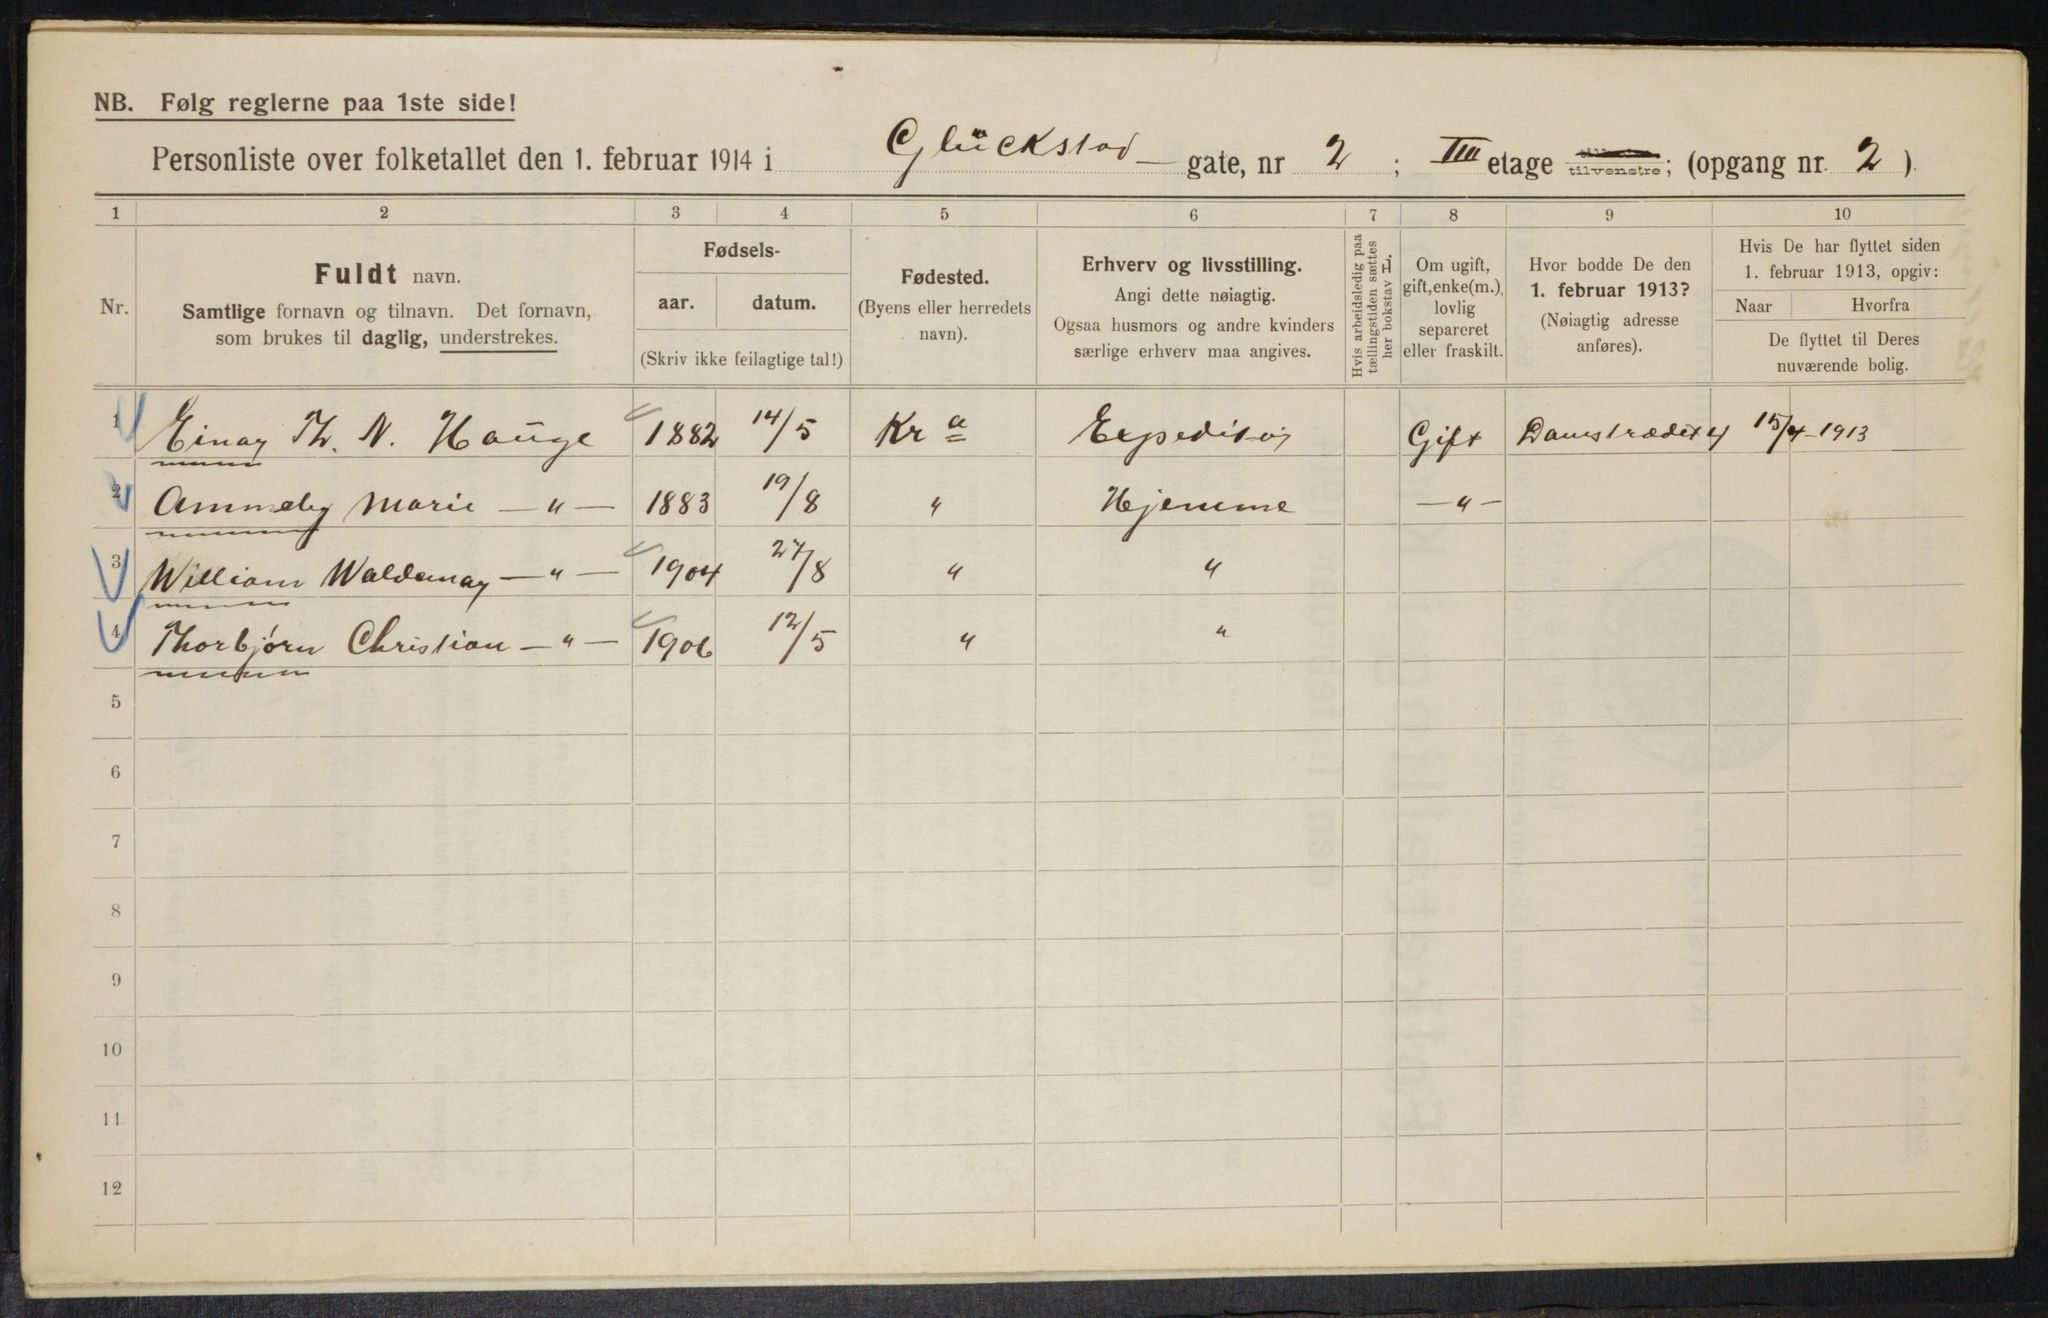 NB. Følg reglerne paa 1ste side!
Personliste over folketallet den 1. februar 1914 i Glückstad — gate, nr 2 ; III etage tilvenstre; (opgang nr. 2).
1 2 3 4 5 6 7 8 9 10
Nr.
Fuldt navn.
Samtlige fornavn og tilnavn. Det fornavn,
som brukes til daglig, understrekes.
Fødsels-
aar. datum.
(Skriv ikke feilagtige tal!)
Fødested.
(Byens eller herredets
navn).
Erhverv og livsstilling.
Angi dette nøiagtig.
Ogsaa husmors og andre kvinders
særlige erhverv maa angives.
Hvis arbeidsledig paa
tællingstiden sættes
her bokstav L.
Om ugift,
gift, enke(m.),
lovlig
separeret
eller fraskilt.
Hvor bodde De den
1. februar 1913?
(Nøiagtig adresse
anføres).
Hvis De har flyttet siden
1. februar 1913, opgiv:
Naar Hvorfra
De flyttet til Deres
nuværende bolig.
1 Einar Th. N. Hauge 1882 14/5 Kra Expeditør Gift Damstrædet 4 15/4 - 1913
2 Marie — " — 1883 19/8 " Hjemme — " —
3 William Waldemar — " — 1904 27/8 " "
4 Thorbjørn Christian — " — 1906 12/5 " "
5
6
7
8
9
10
11
12